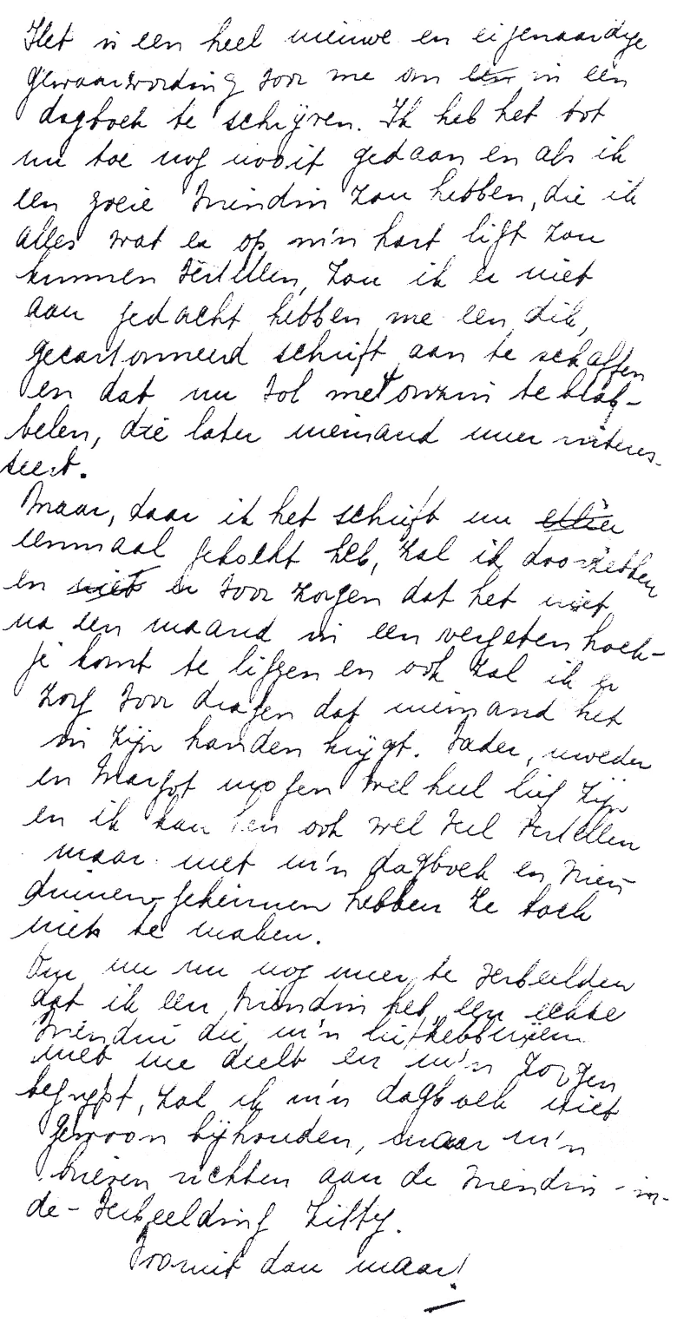 Het is een heel nieuwe en eigenaardige
gewaarwording voor me om een in een
dagboek te schrijven. Ik heb het tot
nu toe nog nooit gedaan en als ik
een goeie vriendin zou hebben, die ik
alles wat er op m'n hart ligt zou
kunnen vertellen, zou ik er niet
aan gedacht hebben me een dik,
gecartonneerd schrift aan te schaffen
en dat nu vol met onzin te klab-
belen, die later niemand meer interes-
seert.
Maar, daar ik het schrift nu
eenmaal gekocht heb, zal ik doorzetten
en niet er voor zorgen dat het niet
na een maand in een vergeten hoek-
je komt te liggen en ook zal ik er
zorg voor dragen dat niemand het
in zijn handen krijgt. Vader, moeder
en Margot mogen wel heel lief zijn
en ik kan hen ook wel veel vertellen
maar met m'n dagboek en vrien-
dinnen-geheimen hebben ze toch
niets te maken.
Om me nu nog meer te verbeelden
dat ik een vriendin heb, een echte
vriendin die m'n liefhebberijen
met me deelt en m'n zorgen
begrijpt, zal ik m'n dagboek niet
gewoon bijhouden, maar m'n
brieven richten aan de vriendin-in-
de-verbeelding Kitty.
Vooruit dan maar!